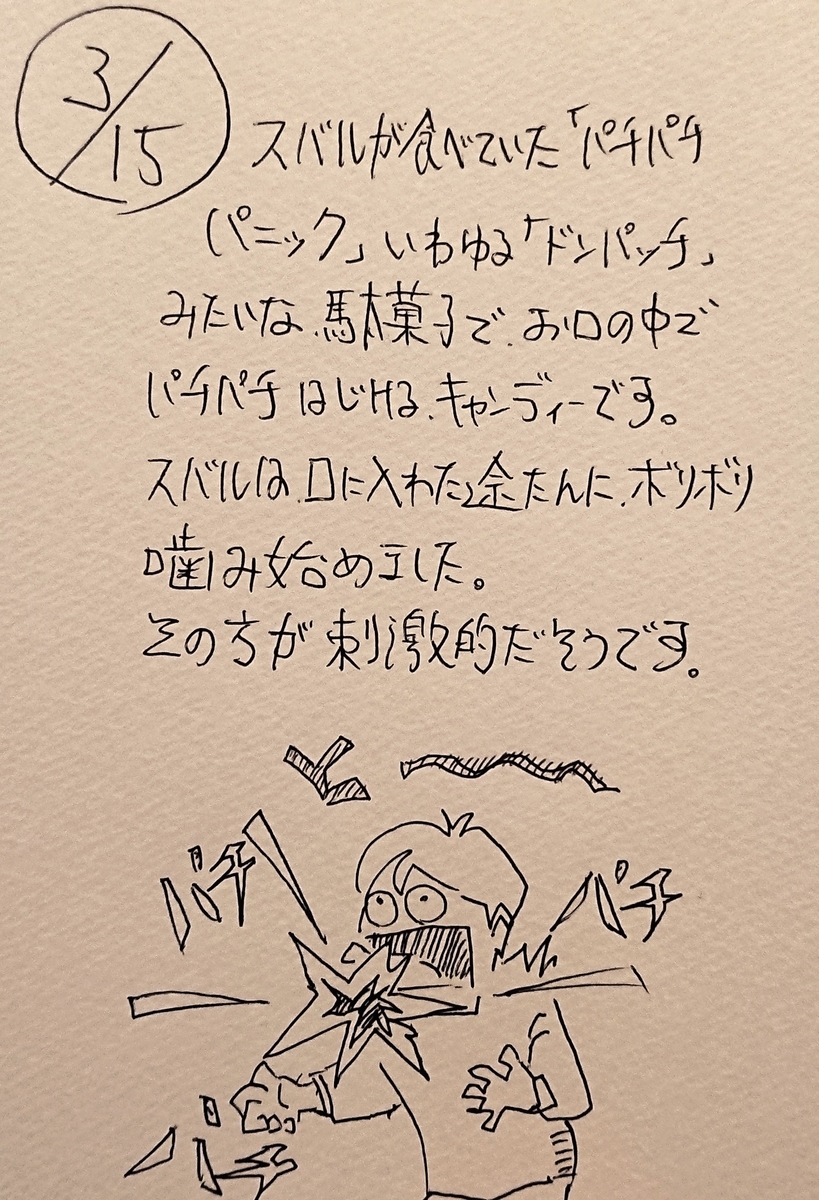 3/15
スバルが食べていた「パチパチ
パニック」いわゆる「ドンパッチ」
みたいな、駄菓子で、お口の中で
パチパチはじける、キャンディーです。
スバルは、口に入れた途たんに、ボリボリ
噛み始めました。
その方が刺激的だそうです。
ひー
パチ
パチ
パチ